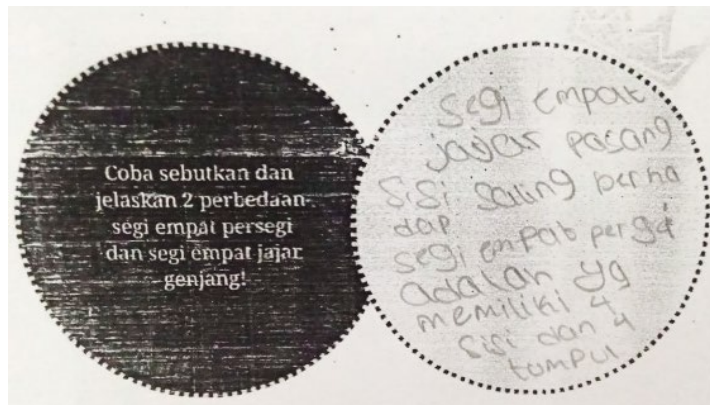 Coba sebutkan dan
jelaskan 2 perbedaan
segi empat persegi
dan segi empat jajar
genjang!
segi empat
jajar pasang
sisi saling berha
dap
segi empat pergi
adalah yg
memiliki 4
sisi dan 4
tumpul